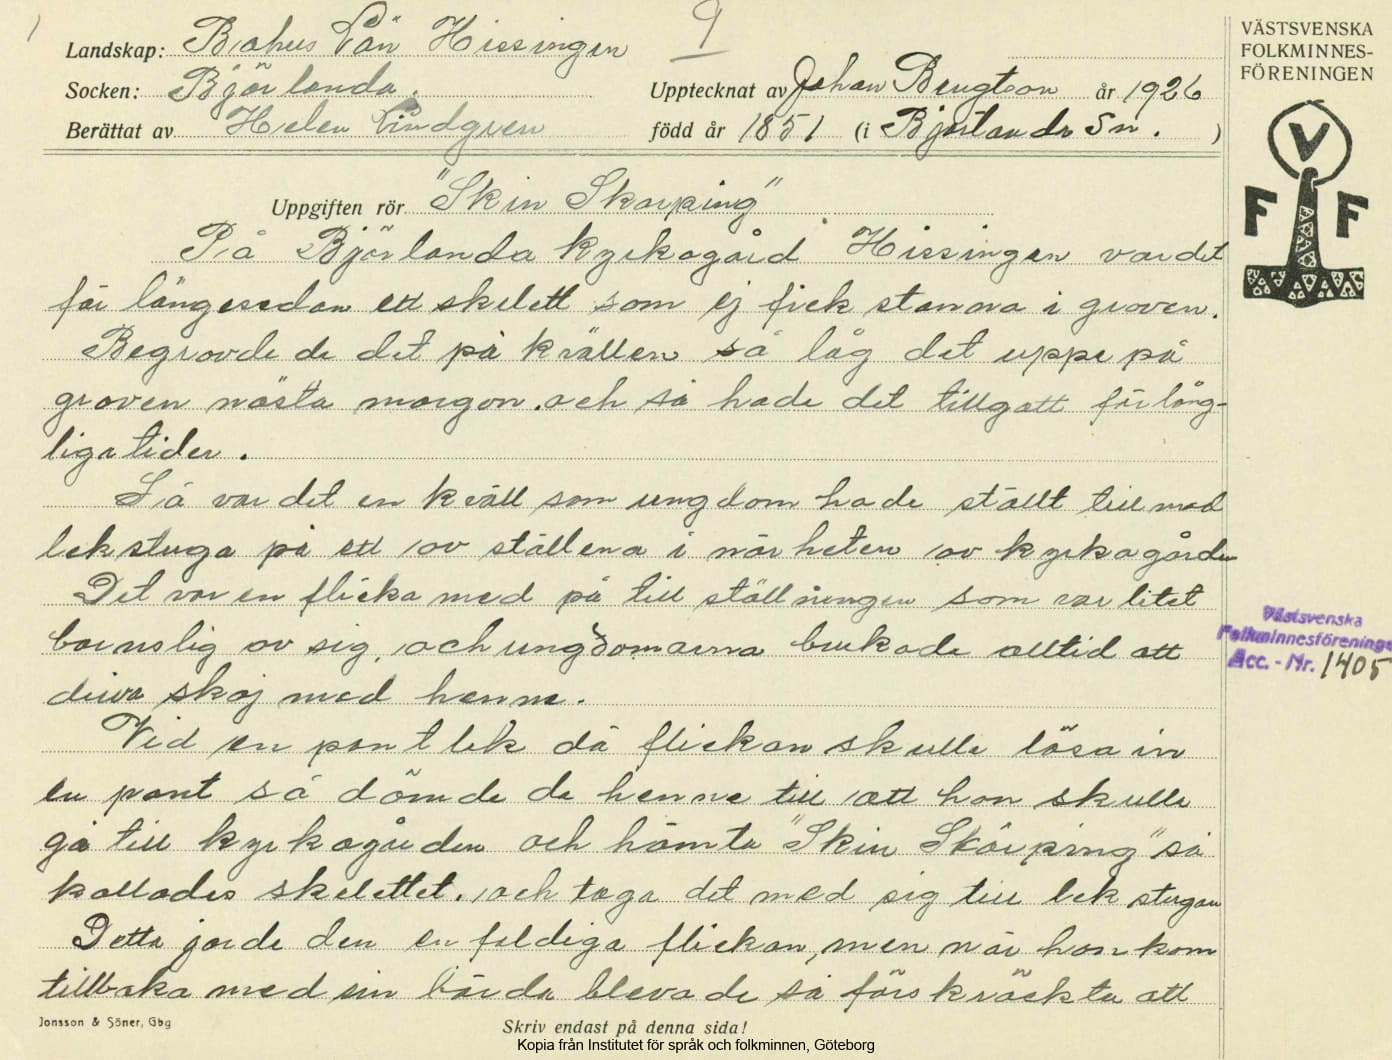 9
Landskap: Bohus Län Hissingen
Socken: Björlanda.
Upptecknat av Johan Bengtson år 1926
Berättat av Helen Lindgren född år 1851 (i Björlanda Sn. )
Uppgiften rör "Skin Skarping"
På Björlanda kyrkogård Hissingen var det
för längesedan ett skelett som ej fick stanna i graven.
Begravde de det på kvällen så låg det uppe på
graven nästa morgon. och så hade det tillgått för lång-
liga tider.
Så var det en kväll som ungdom hade ställt till med
lekstuga på ett av ställena i närheten av kyrkogården
Det var en flicka med på till ställningen som var litet
barnslig av sig, och ungdomarna brukade alltid att
driva skoj med henne.
Vid en pant lek då flickan skulle lösa in
en pant så dömde de henne till att hon skulle
gå till kyrkogården och hämta "Skin Skårping" så
kallades skelettet. och taga det med sig till lek stugan
Detta jorde den en faldiga flickan, men när hon kom
tillbaka med sin börda bleva de så förskräckta att
Jonsson & Söner, Gbg
Skriv endast på denna sida!
Kopia från Institutet för språk och folkminnen, Göteborg
VÄSTSVENSKA
FOLKMINNES-
FÖRENINGEN
V
F F
Västsvenska
Folkminnesföreningen
Acc. - Nr. 1405